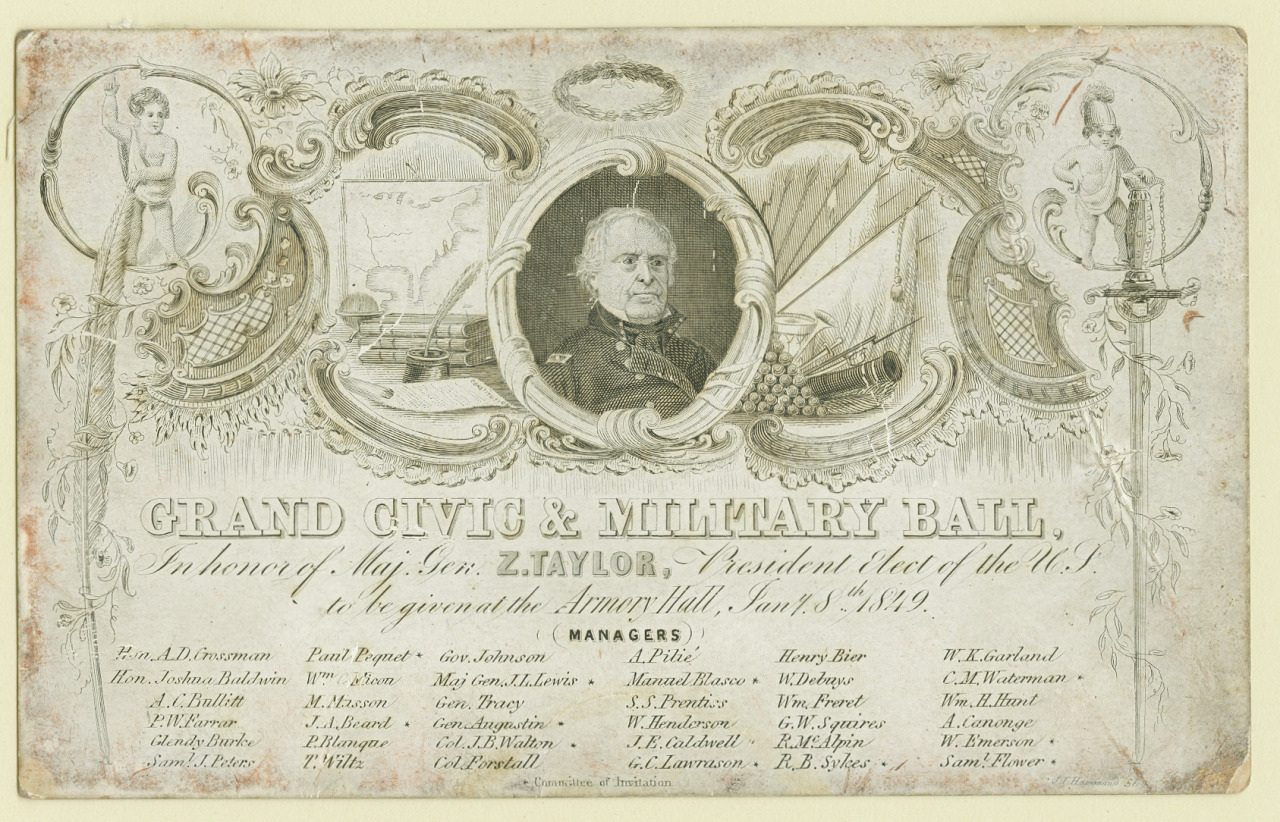 GRAND CIVIC & MILITARY BALL,
In honor of Maj. Gen. Z. TAYLOR, President Elect of the U.S.
to be given at the Armory Hall, Jany. 8th, 1849.
(MANAGERS)
Hon. A.D. Crossman Paul Pequet * Gov. Johnson A. Pilié Henry Bier W.K. Garland
Hon. Joshua Baldwin Wm Maj Gen. J.L. Lewis * Manuel Blasco * W. Debuys C.M. Waterman *
A.C. Bullitt M. Musson Gen. Tracy S.S. Prentiss Wm. Freret Wm. H. Hunt
P.W. Farrar J.A. Beard * Gen. Augustin * W. Henderson G.W. Squires A. Canonge
Glendy Burke P. Blanque Col. J.B. Walton * J.E. Caldwell R. McAlpin W. Emerson *
Saml. J. Peters T. Wiltz Col. Forstall G.C. Lawrason * R.B. Sykes * Saml. Flower *
* Committee of Invitation